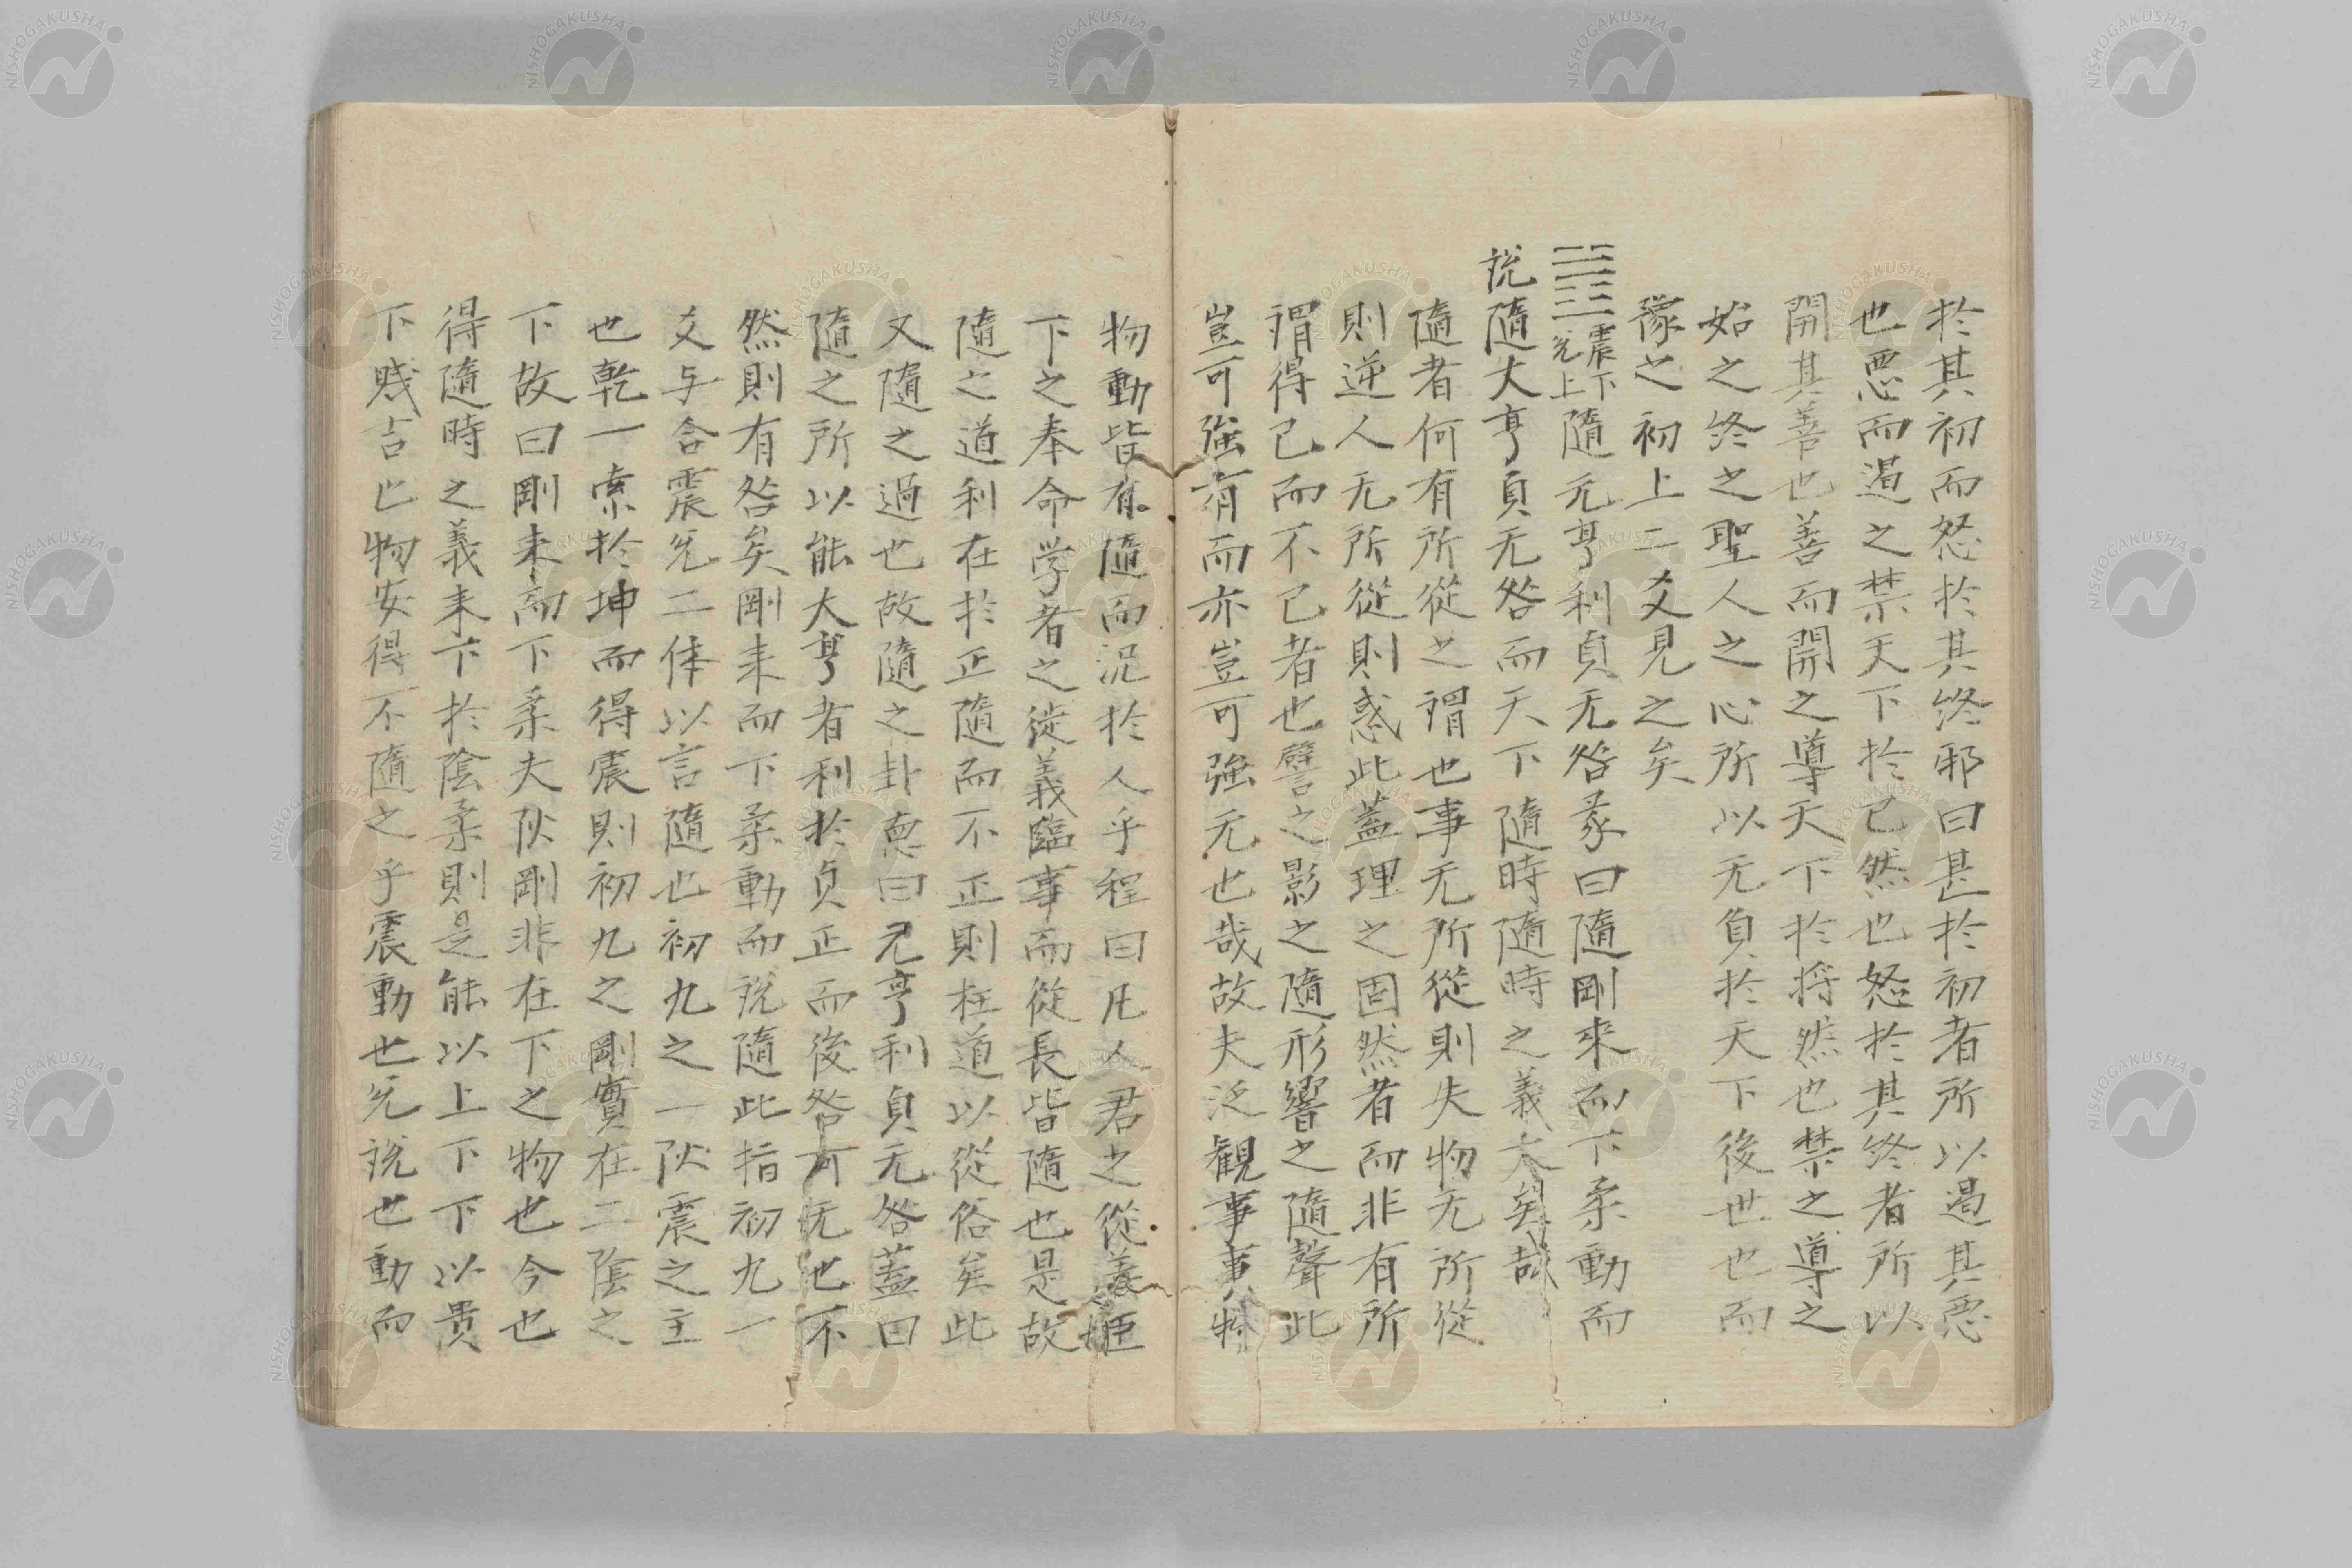 於其初而怒於其終邪曰甚於初者所以遏其惡
也悪而遏之禁天下於已然也怒於其終者所以
開其善也善而開之導天下於将然也禁之導之
始之終之聖人之心所以无負於天下後世也而
豫之初上二爻見之矣
震下兌上隨元亨利貞无咎彖曰隨剛來而下柔動而
説隨大亨貞无咎而天下隨時隨時之義大矣哉
隨者何有所從之謂也事无所從則失物无所從
則逆人无所從則惑此蓋理之固然者而非有所
謂得已而不已者也譬之影之隨形響之隨聲此
豈可強有而亦豈可強无也哉故夫泛観事事物
物動皆有隨而況於人乎程曰凡人君之從善臣
下之奉命学者之徙義臨事而從長皆隨也是故
隨之道利在於正隨而不正則枉道以從俗矣此
又隨之過也故隨之卦惪曰元亨利貞无咎蓋曰
隨之所以能大亨者利於貞正而後咎可无也不
然則有咎矣剛来而下柔動而説隨此指初九一
爻与合震兌二体以言隨也初九之一阦震之主
也乾一索於坤而得震則初九之剛實在二陰之
下故曰剛来而下柔夫阦剛非在下之物也今也
得隨時之義来下於陰柔則是能以上下下以貴
下賎吉凶物安得不隨之乎震動也兌説也動而